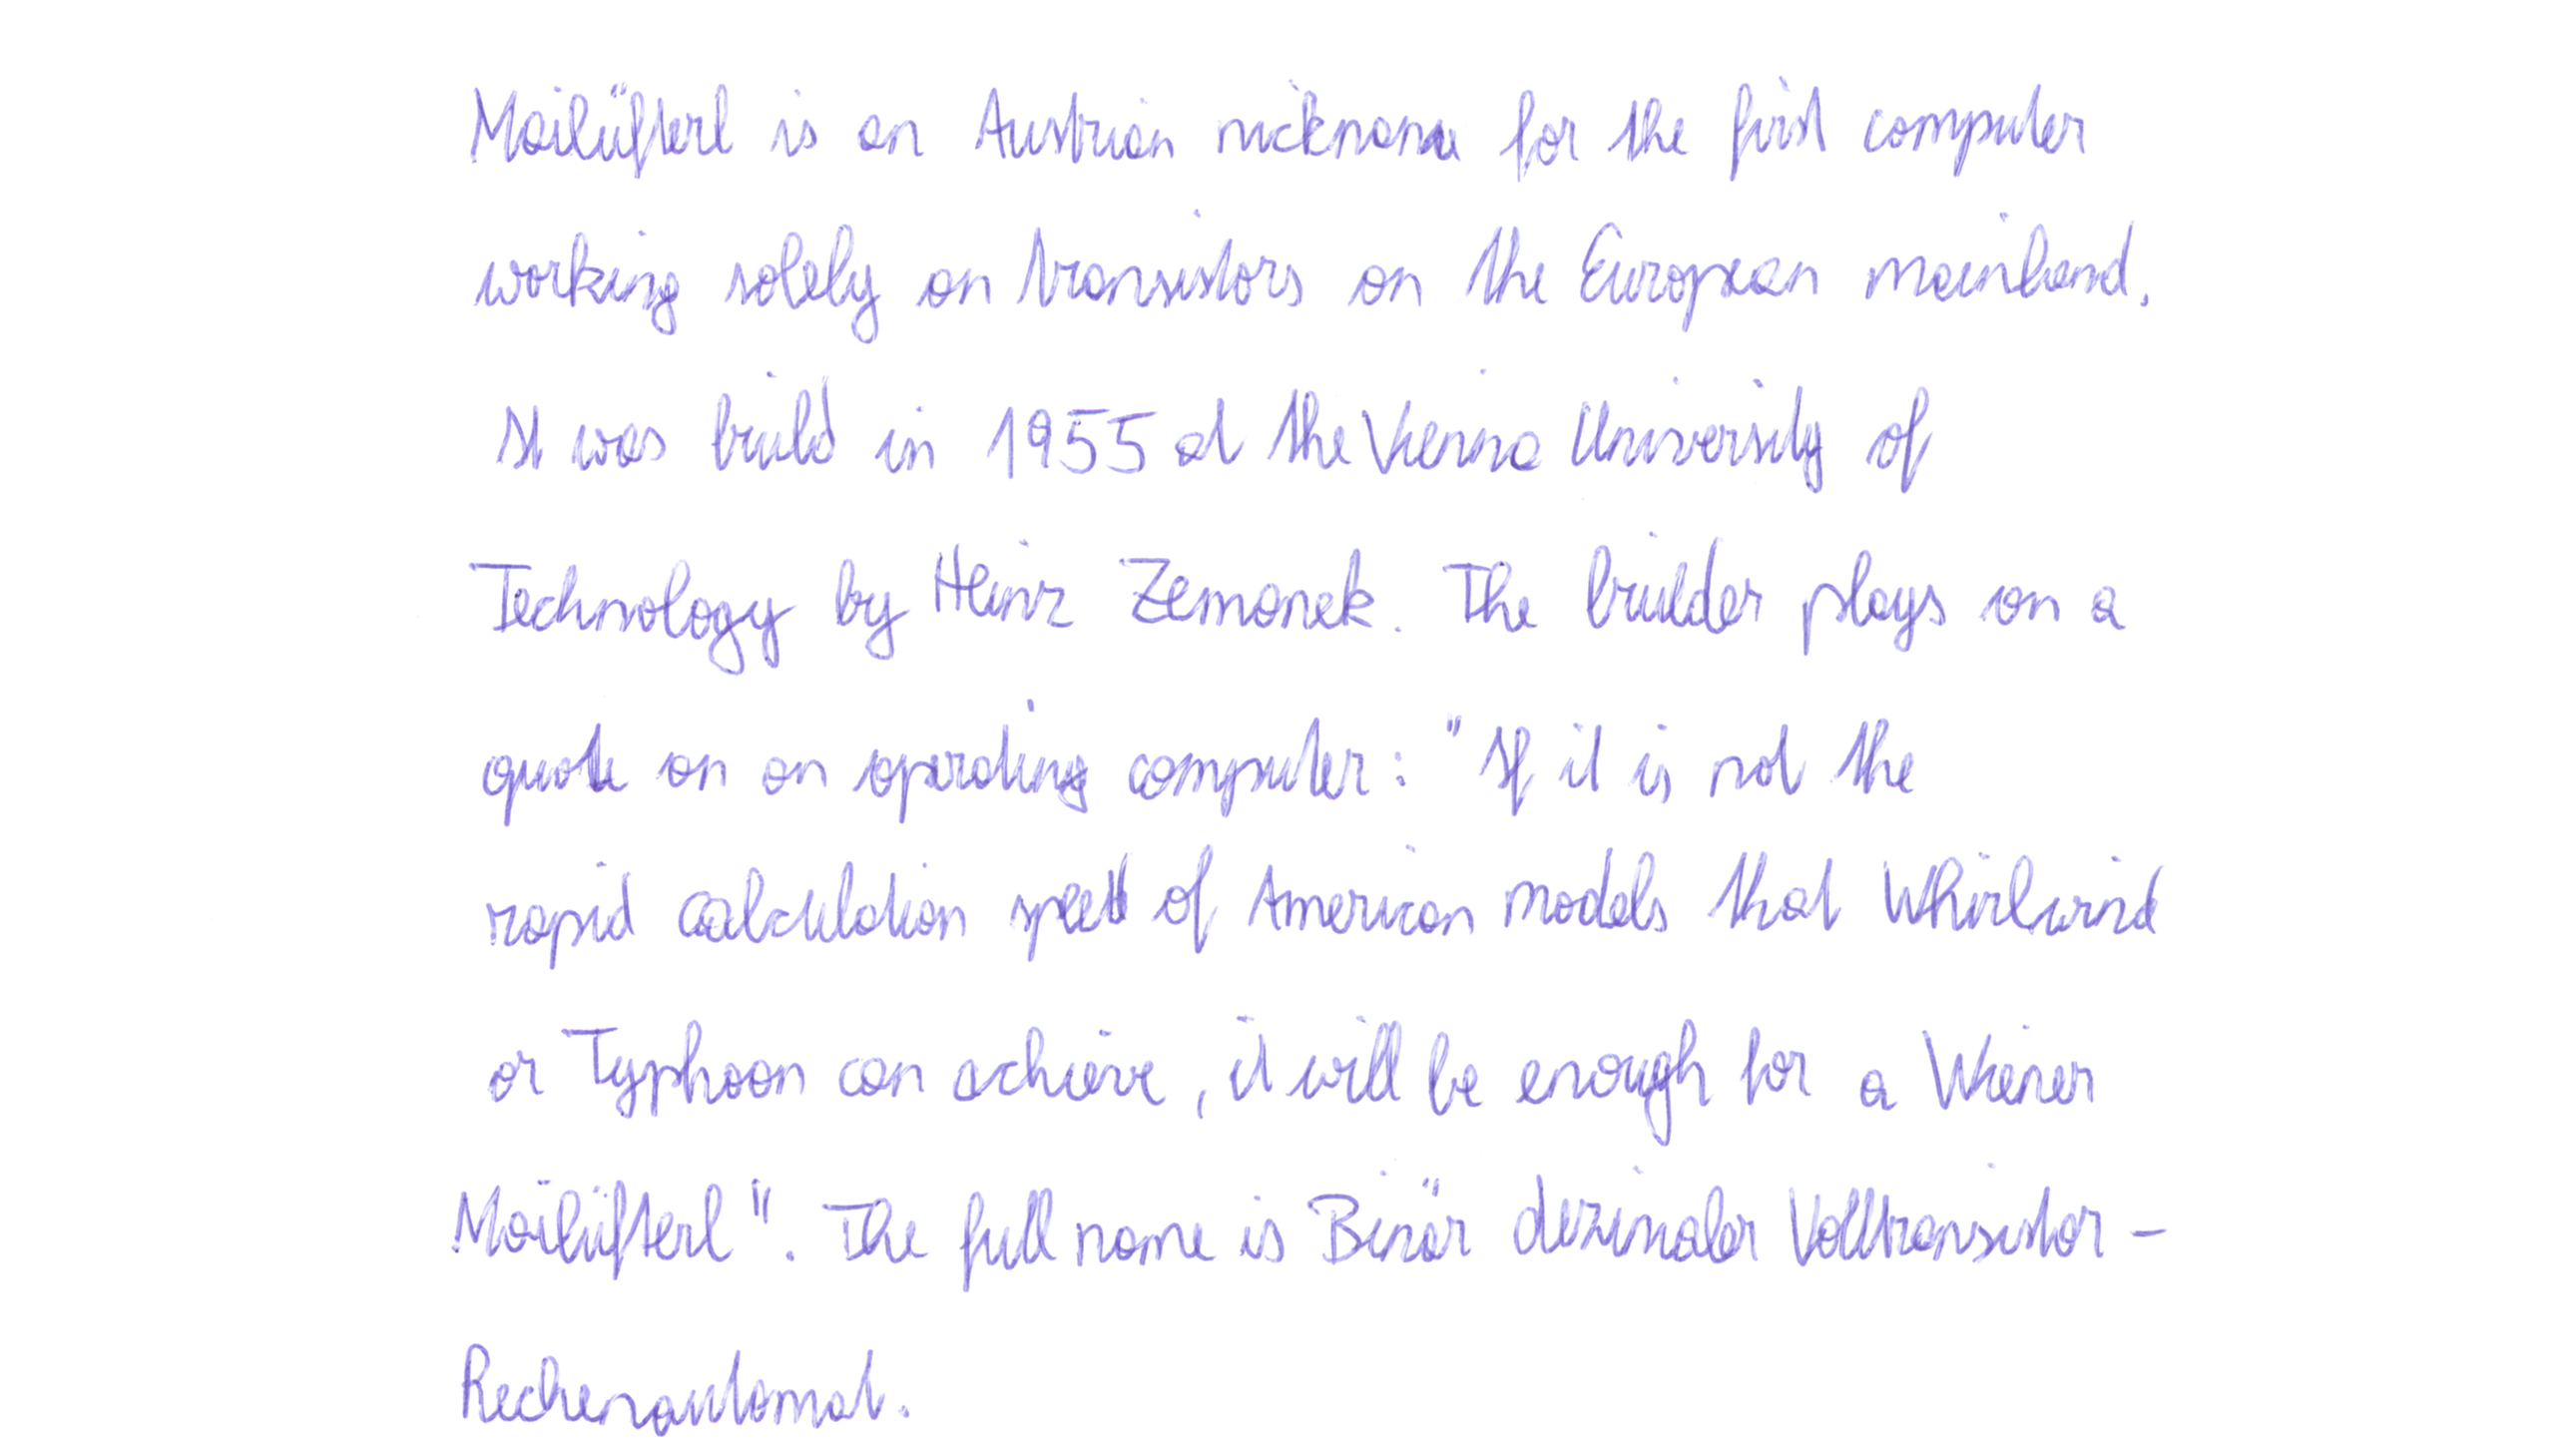 Mailüfterl is an Austrian nickname for the first computer
working solely on transistors on the European mainland.
It was build in 1955 at the Vienna University of
Technology by Heinz Zemanek. The builder plays on a
quote on an operating computer: "If it is not the
rapid calculation speed of American models that Whirlwind
or Typhoon can achieve, it will be enough for a Wiener
Mailüfterl". The full name is Binär dezimaler Volltransistor-
Rechenautomat.